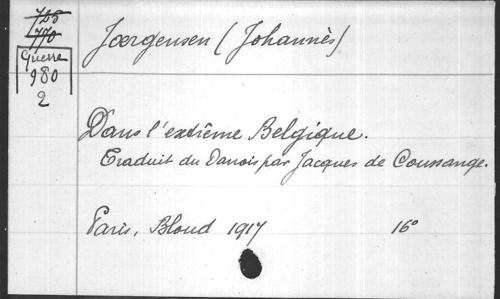 725
770
Guerre
980
2
Joergensen (Johannès)
Dans l'extrême Belgique.
Traduit du Danois par Jacques de Coussange.
Paris, Bloud 1917 16°